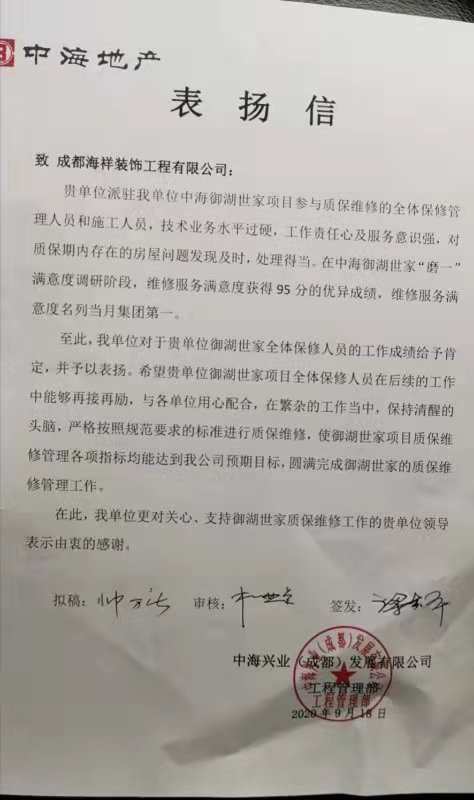 中海地产
表扬信
致 成都海祥装饰工程有限公司：
贵单位派驻我单位中海御湖世家项目参与质保维修的全体保修管
理人员和施工人员，技术业务水平过硬，工作责任心及服务意识强，对
质保期内存在的房屋问题发现及时，处理得当。在中海御湖世家“磨一”
满意度调研阶段，维修服务满意度获得 95 分的优异成绩，维修服务满
意度名列当月集团第一。
至此，我单位对于贵单位御湖世家全体保修人员的工作成绩给予肯
定，并予以表扬。希望贵单位御湖世家项目全体保修人员在后续的工作
中能够再接再励，与各单位用心配合，在繁杂的工作当中，保持清醒的
头脑，严格按照规范要求的标准进行质保维修，使御湖世家项目质保维
修管理各项指标均能达到我公司预期目标，圆满完成御湖世家的质保维
修管理工作。
在此，我单位更对关心、支持御湖世家质保维修工作的贵单位领导
表示由衷的感谢。
拟稿： 审核： 签发：
中海兴业（成都）发展有限公司
工程管理部
2020 年 9 月 18 日
中海兴业（成都）发展有限公司
工程管理部